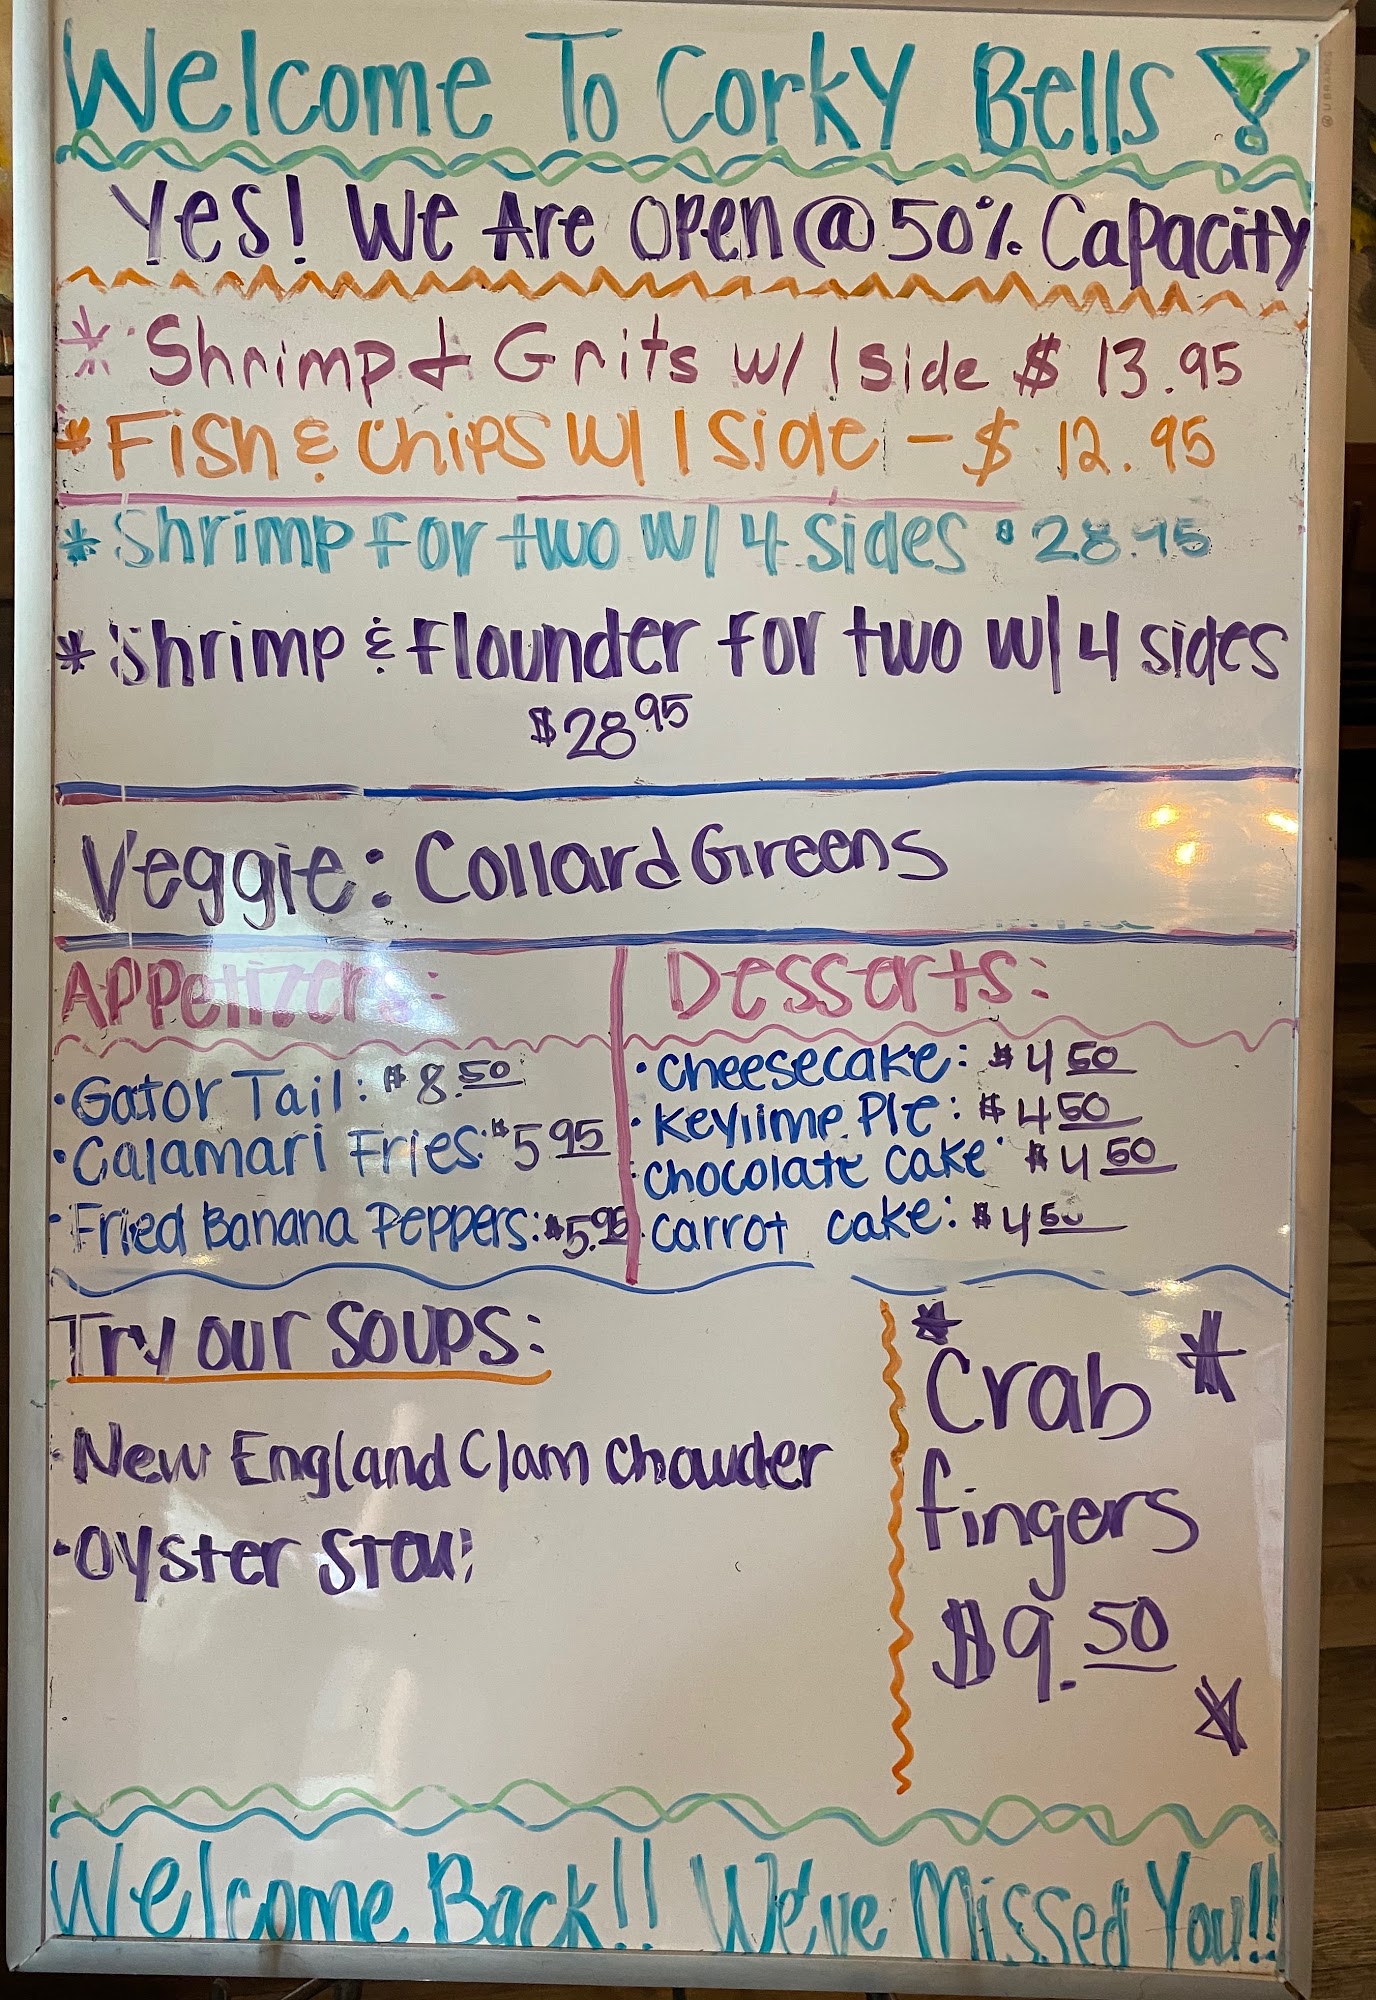 Welcome To Corky Bells
Yes! We Are Open @ 50% Capacity
* Shrimp & Grits w/ 1 side $ 13.95
* Fish & Chips w/ 1 side - $ 12.95
* Shrimp for two w/ 4 sides $28.95
* Shrimp & flounder for two w/ 4 sides
$28.95
Veggie: Collard Greens
Appetizers:
• Gator Tail: $8.50
• Calamari Fries: $5.95
• Fried Banana Peppers: $5.95
Desserts:
• Cheesecake: $4.50
• Keylime Pie: $4.50
• Chocolate Cake $4.50
• Carrot cake: $4.50
Try our Soups:
• New England Clam Chowder
• Oyster Stew
* Crab *
fingers
$9.50
*
Welcome Back!! We've Missed You!!